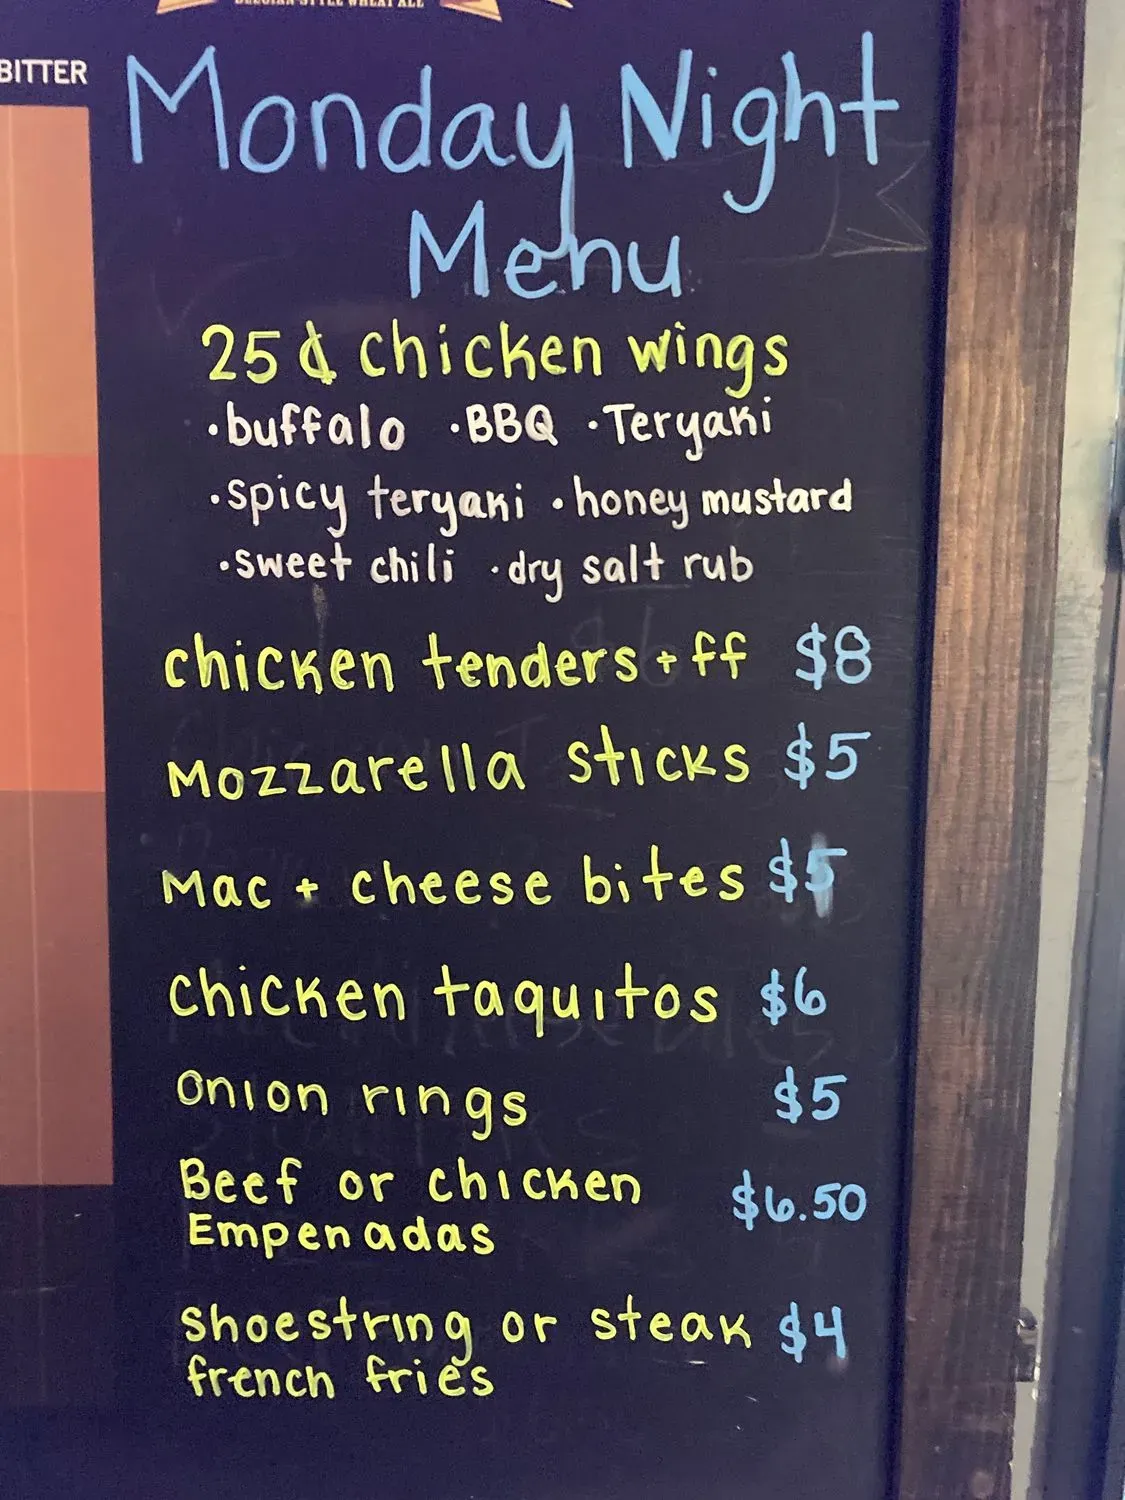 BELGIAN-STYLE WHEAT ALE
BITTER
Monday Night
Menu
25¢ chicken wings
·buffalo ·BBQ ·Teryaki
·spicy teryaki ·honey mustard
·sweet chili ·dry salt rub
chicken tenders + ff $8
Mozzarella sticks $5
Mac + cheese bites $5
chicken taquitos $6
onion rings $5
Beef or chicken
Empenadas $6.50
shoestring or steak $4
french fries